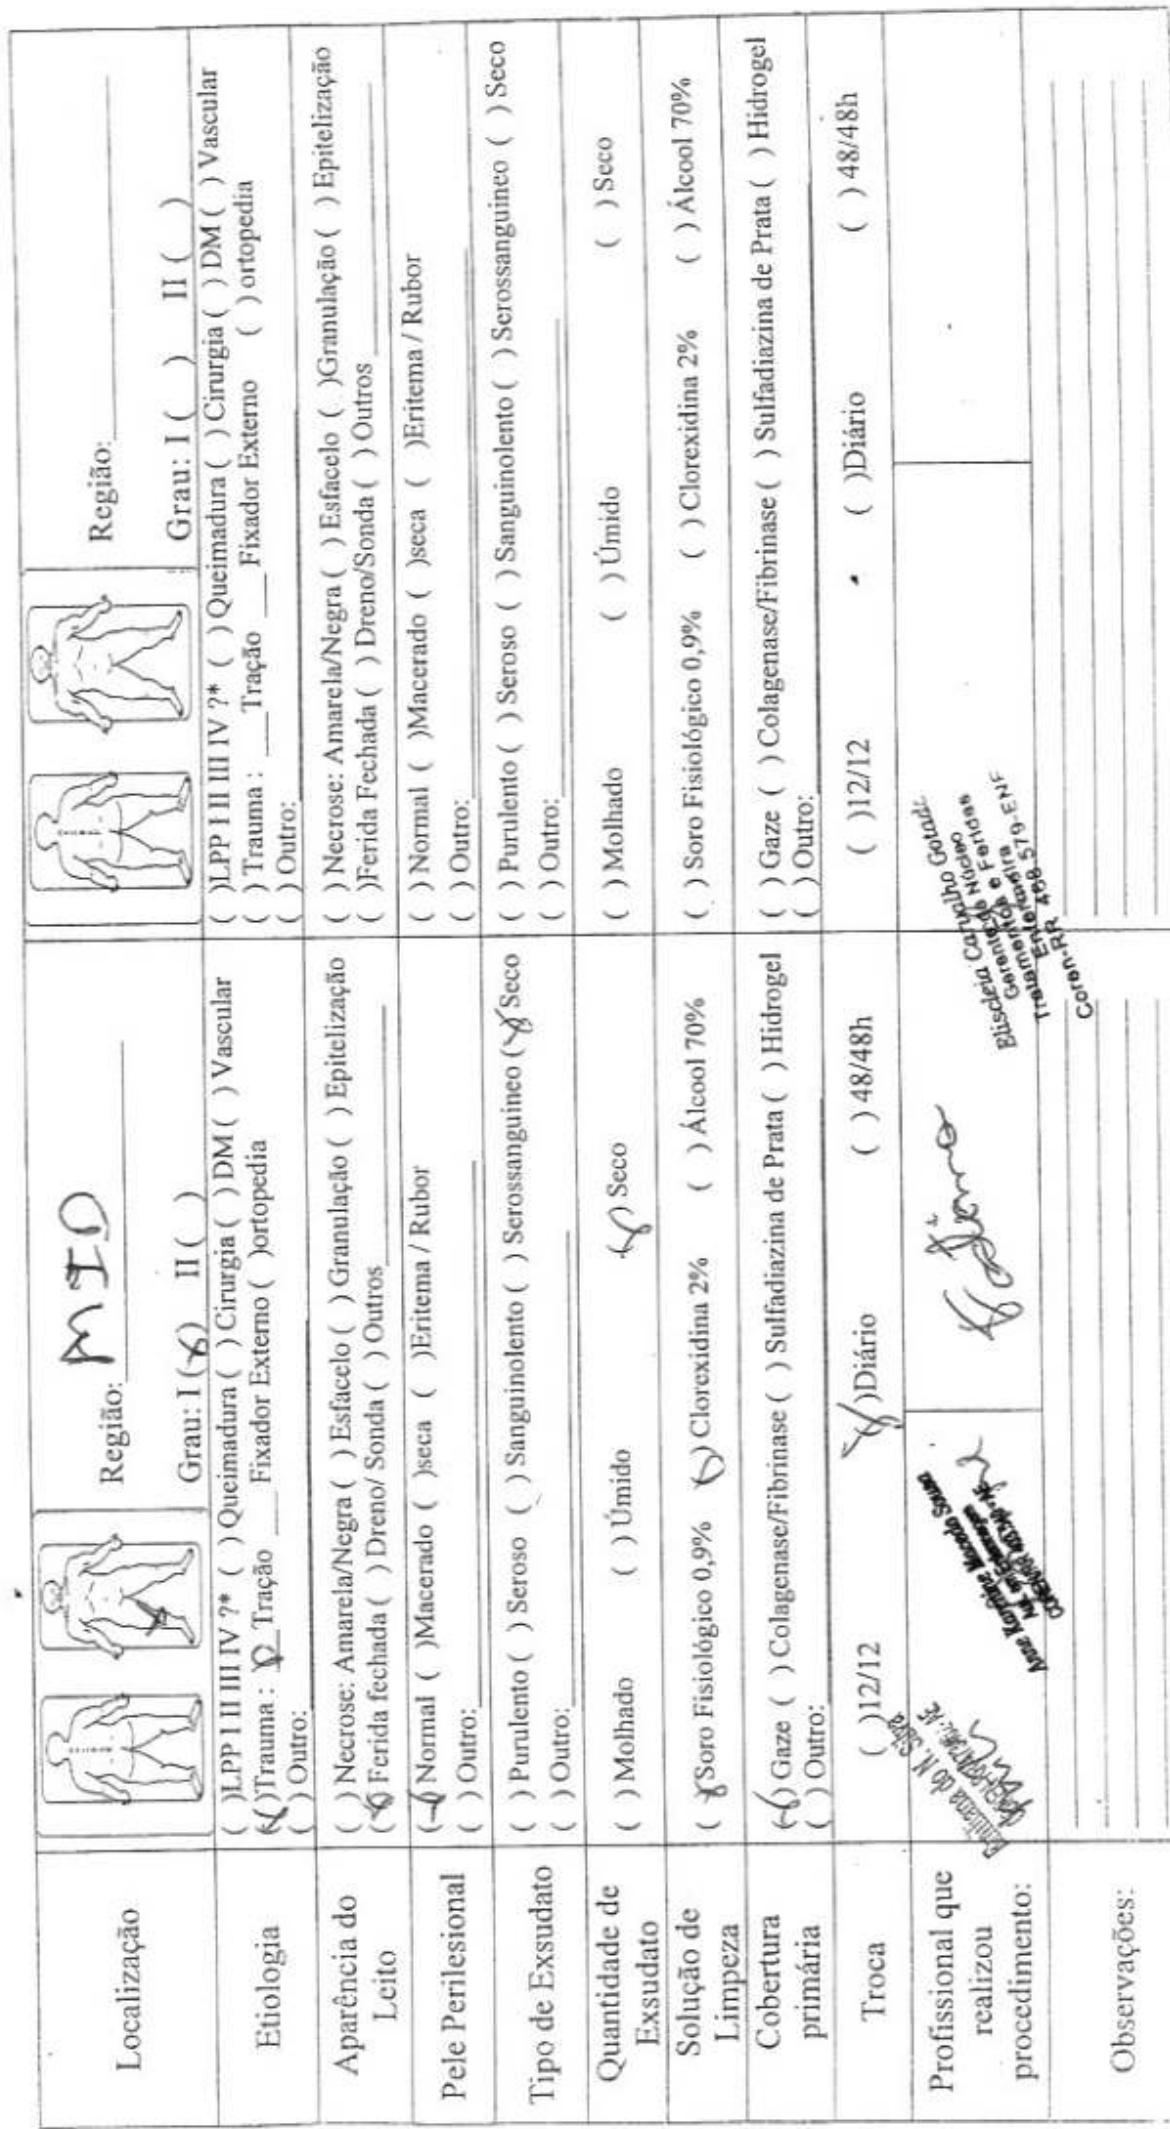 Localização
Região: MID
Grau: I (x) II ( )
Região:
Grau: I ( ) II ( )
Etiologia
( )LPP I II III IV ?* ( ) Queimadura ( ) Cirurgia ( ) DM ( ) Vascular
(x)Trauma : Tração ___ Fixador Externo ( )ortopedia
( ) Outro:
( )LPP I II III IV ?* ( ) Queimadura ( ) Cirurgia ( ) DM ( ) Vascular
( ) Trauma : ___ Tração ___ Fixador Externo ( ) ortopedia
( ) Outro:
Aparência do
Leito
( ) Necrose: Amarela/Negra ( ) Esfacelo ( ) Granulação ( ) Epitelização
(x) Ferida fechada ( ) Dreno/ Sonda ( ) Outros
( ) Necrose: Amarela/Negra ( ) Esfacelo ( )Granulação ( ) Epitelização
( )Ferida Fechada ( ) Dreno/Sonda ( ) Outros
Pele Perilesional
(x) Normal ( )Macerado ( )seca ( )Eritema / Rubor
( ) Outro:
( ) Normal ( )Macerado ( )seca ( )Eritema / Rubor
( ) Outro:
Tipo de Exsudato
( ) Purulento ( ) Seroso ( ) Sanguinolento ( ) Serossanguineo (x) Seco
( ) Outro:
( ) Purulento ( ) Seroso ( ) Sanguinolento ( ) Serossanguineo ( ) Seco
( ) Outro:
Quantidade de
Exsudato
( ) Molhado ( ) Úmido (x) Seco
( ) Molhado ( ) Úmido ( ) Seco
Solução de
Limpeza
(x) Soro Fisiológico 0,9% (x) Clorexidina 2% ( ) Álcool 70%
( ) Soro Fisiológico 0,9% ( ) Clorexidina 2% ( ) Álcool 70%
Cobertura
primária
(x) Gaze ( ) Colagenase/Fibrinase ( ) Sulfadiazina de Prata ( ) Hidrogel
( ) Outro:
( ) Gaze ( ) Colagenase/Fibrinase ( ) Sulfadiazina de Prata ( ) Hidrogel
( ) Outro:
Troca
( )12/12 (x)Diário ( ) 48/48h
( )12/12 ( )Diário ( ) 48/48h
Profissional que
realizou
procedimento:
do N. Silva
Anne Karoline Macedo Souza
Carvalho
Gerente do Núcleo
Tratamento Feridas
Enfermeira
Coren-RR 488.579-ENF
Observações: